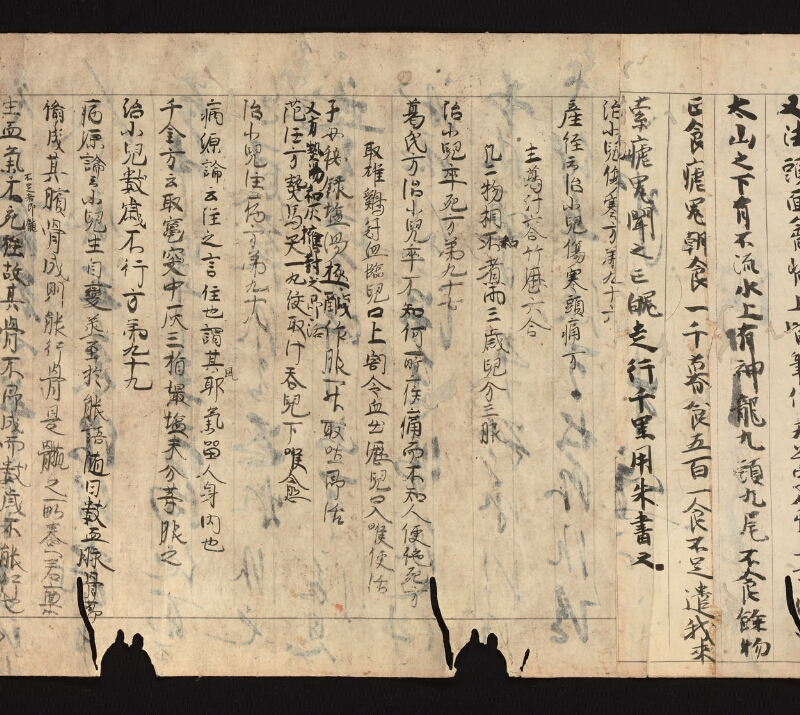 太山之下有不流水上有神龍九頭九尾不食餘物
正食瘧鬼朝食一千暮食五百一食不足遣我來
索瘧鬼聞之亡眼走行千里用朱書之
治小兒傷寒方第九十六
產經云治小兒傷寒頭痛方
生葛汁六合竹瀝六合
凡二物相和煮兩三歲兒分三服
治小兒卒死方第九十七
葛氏方治小兒卒不知何所疾痛而不知人便絕死方
取雄雞冠血臨兒口上割令血出瀝兒口入喉便活
子母秘錄塩湯極鹹作服一升取吐即活
范汪方
治小兒注病方第九十八
病源論云注之言住也謂其邪氣留人身內也
千金方云取竈突中灰三指撮塩末分等服之
治小兒數歲不行方第九十九
病源論云小兒生自變蒸至於能語隨日數血脉骨節
備成其臏骨成則能行骨是髓之所養若稟
生血氣不充強故其骨不即成而數歲不能行也